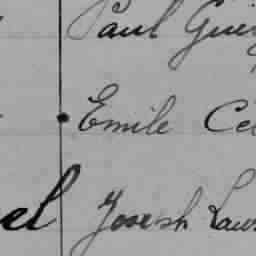 Paul Gui
Emile Ce
el Joseph Law